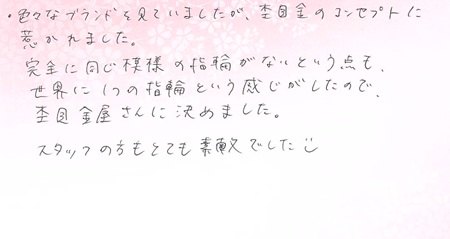 ・色々なブランドを見ていましたが、杢目金のコンセプトに
惹かれました。
完全に同じ模様の指輪がないという点も、
世界に1つの指輪という感じがしたので、
杢目金屋さんに決めました。
スタッフの方もとても素敵でした